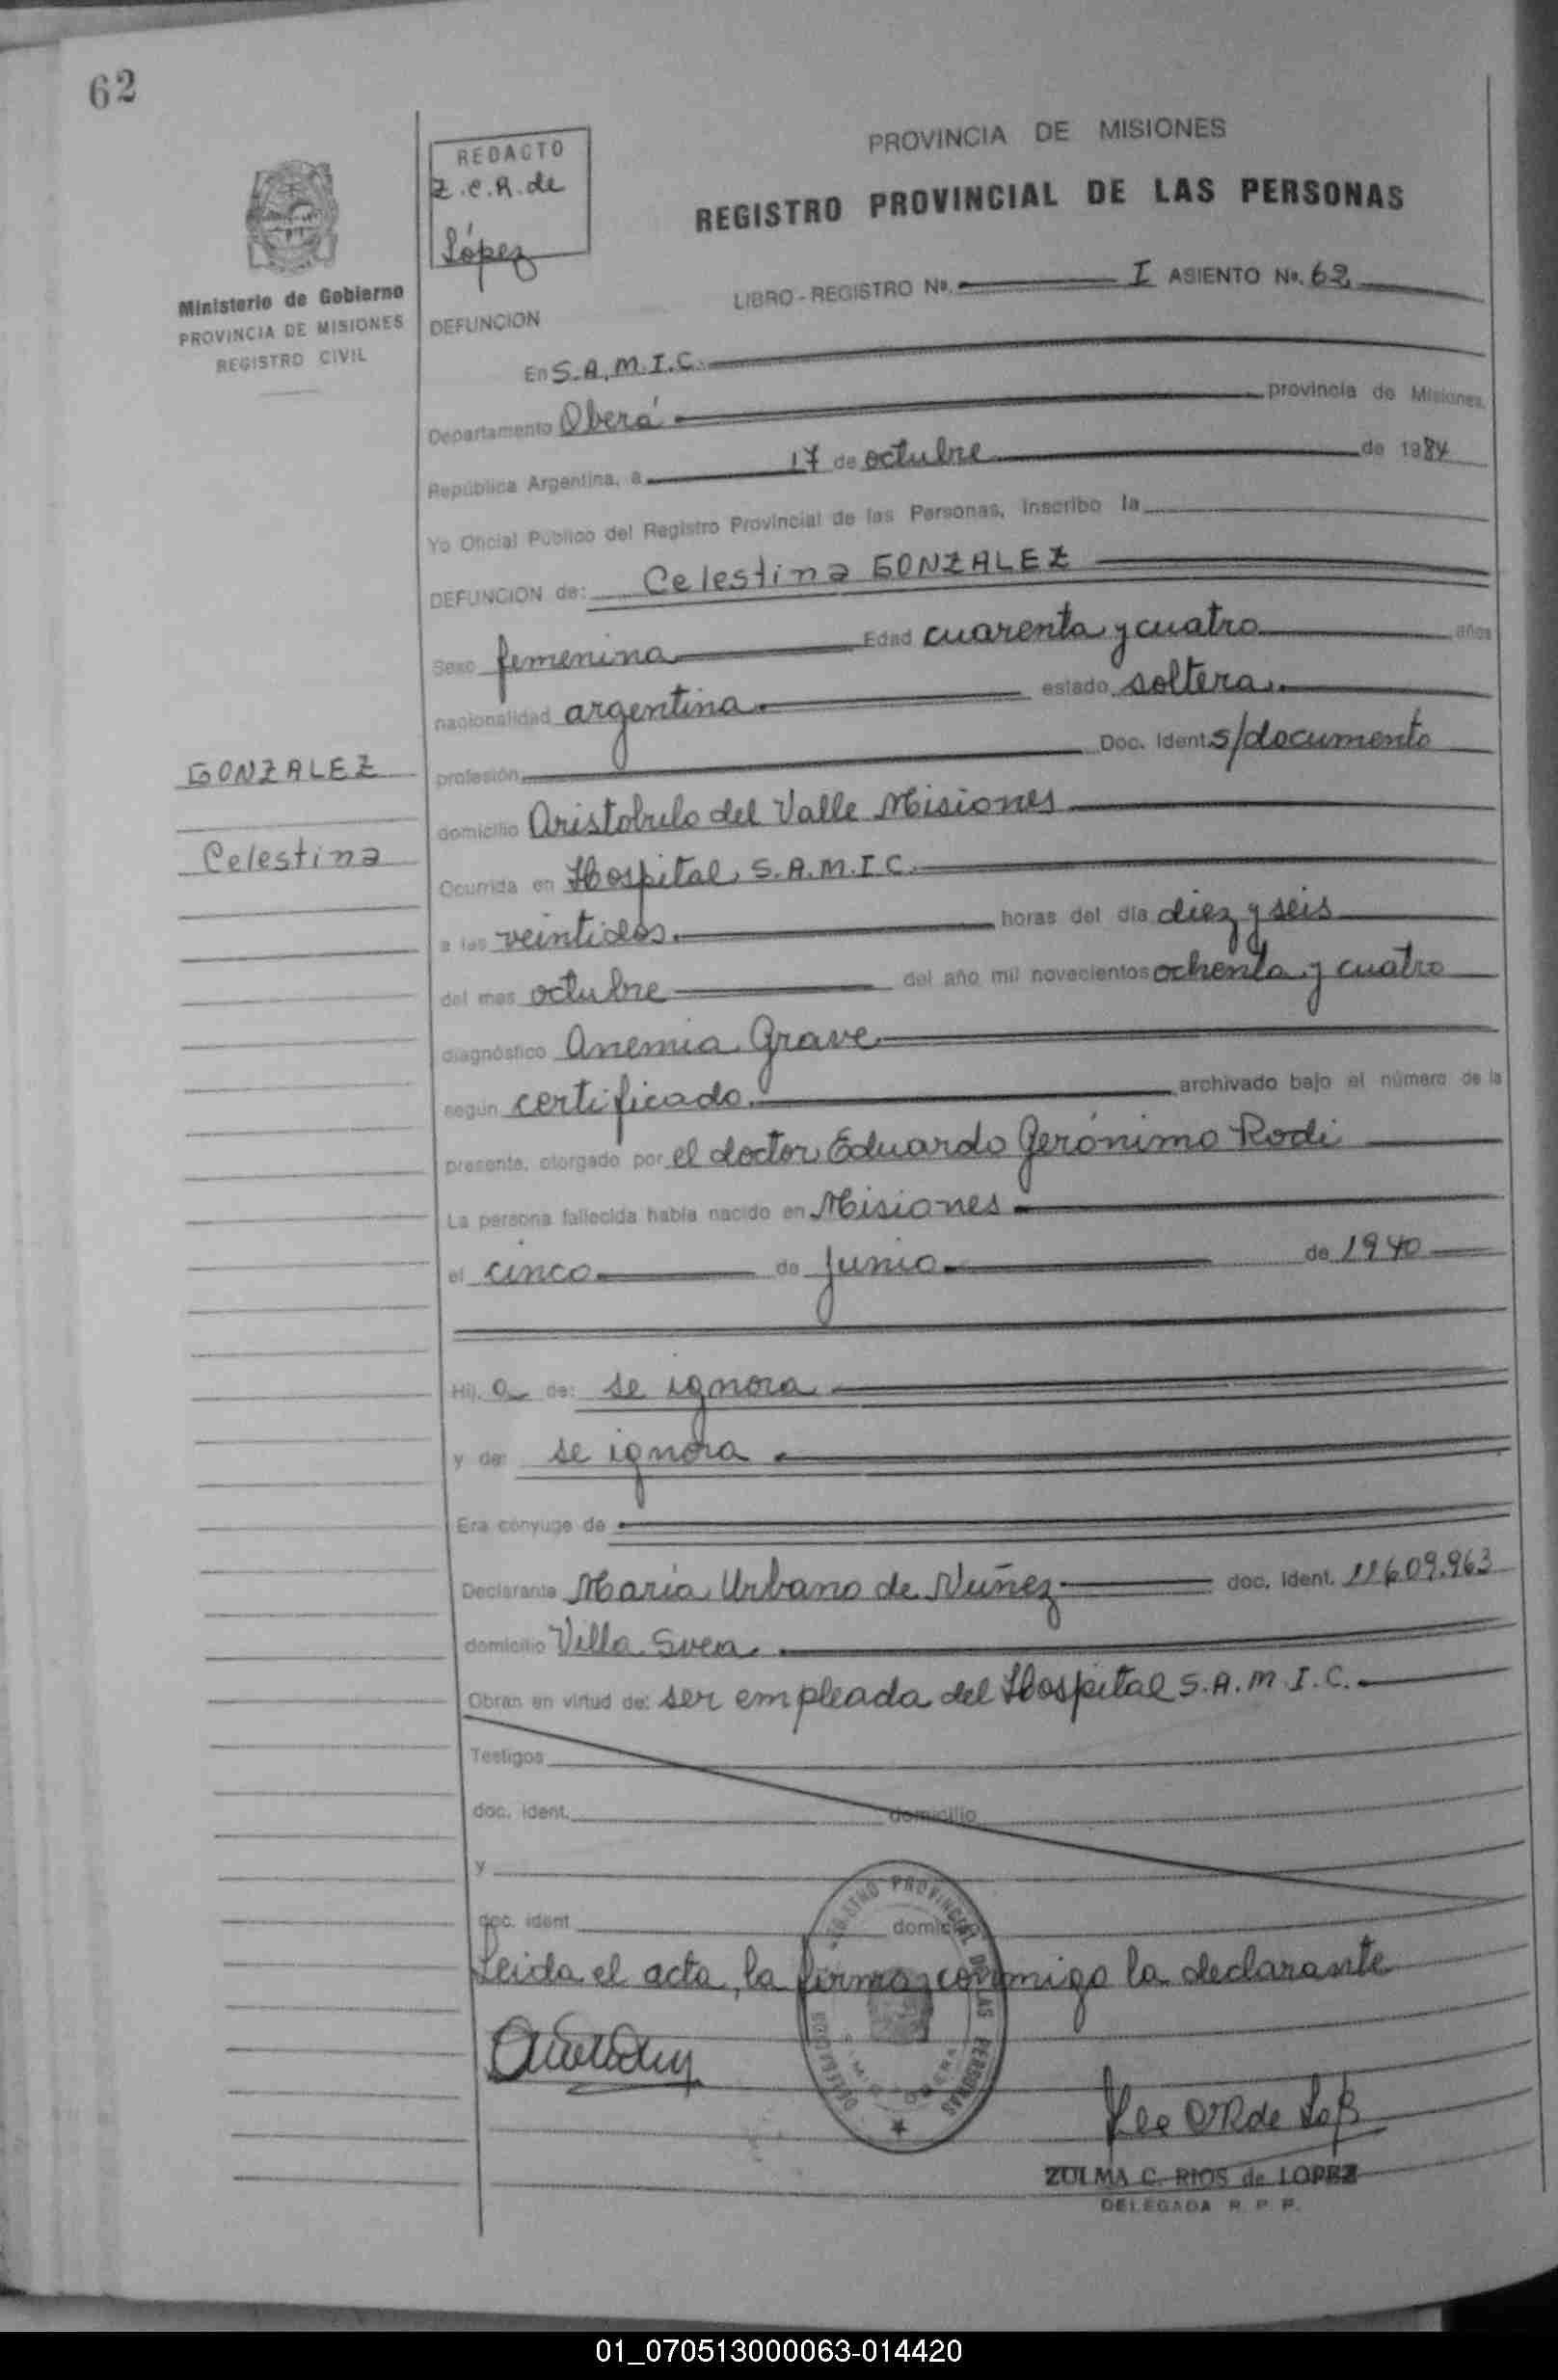 62
REDACTO
Z.C.R. de
López
Ministerio de Gobierno
PROVINCIA DE MISIONES
REGISTRO CIVIL
PROVINCIA DE MISIONES
REGISTRO PROVINCIAL DE LAS PERSONAS
LIBRO - REGISTRO Nº. I ASIENTO Nº. 62
DEFUNCION
En S.A.M.I.C.
Departamento Oberá provincia de Misiones,
República Argentina, a 17 de octubre de 1984
Yo Oficial Público del Registro Provincial de las Personas, inscribo la
DEFUNCION de: Celestina GONZALEZ
Sexo femenina Edad cuarenta y cuatro años
nacionalidad argentina estado soltera
profesión Doc. Ident. s/documento
GONZALEZ
Celestina
domicilio Aristobulo del Valle Misiones
Ocurrida en Hospital S.A.M.I.C.
a las veintidos horas del día diez y seis
del mes octubre del año mil novecientos ochenta y cuatro
diagnóstico Anemia Grave
según certificado archivado bajo el número de la
presente, otorgado por el doctor Eduardo Gerónimo Rodi
La persona fallecida había nacido en Misiones
el cinco de junio de 1940
Hij. a de: se ignora
y de: se ignora
Era cónyuge de
Declarante María Urbano de Nuñez doc. ident. 11609.963
domicilio Villa Svea
Obran en virtud de: ser empleada del Hospital S.A.M.I.C.
Testigos
doc. ident. domicilio
y
doc. ident. domicilio
Leida el acta, la firma conmigo la declarante
REGISTRO PROVINCIAL DE LAS PERSONAS
ZULMA C. RIOS de LOPEZ
DELEGADA R. P. P.
01_070513000063-014420